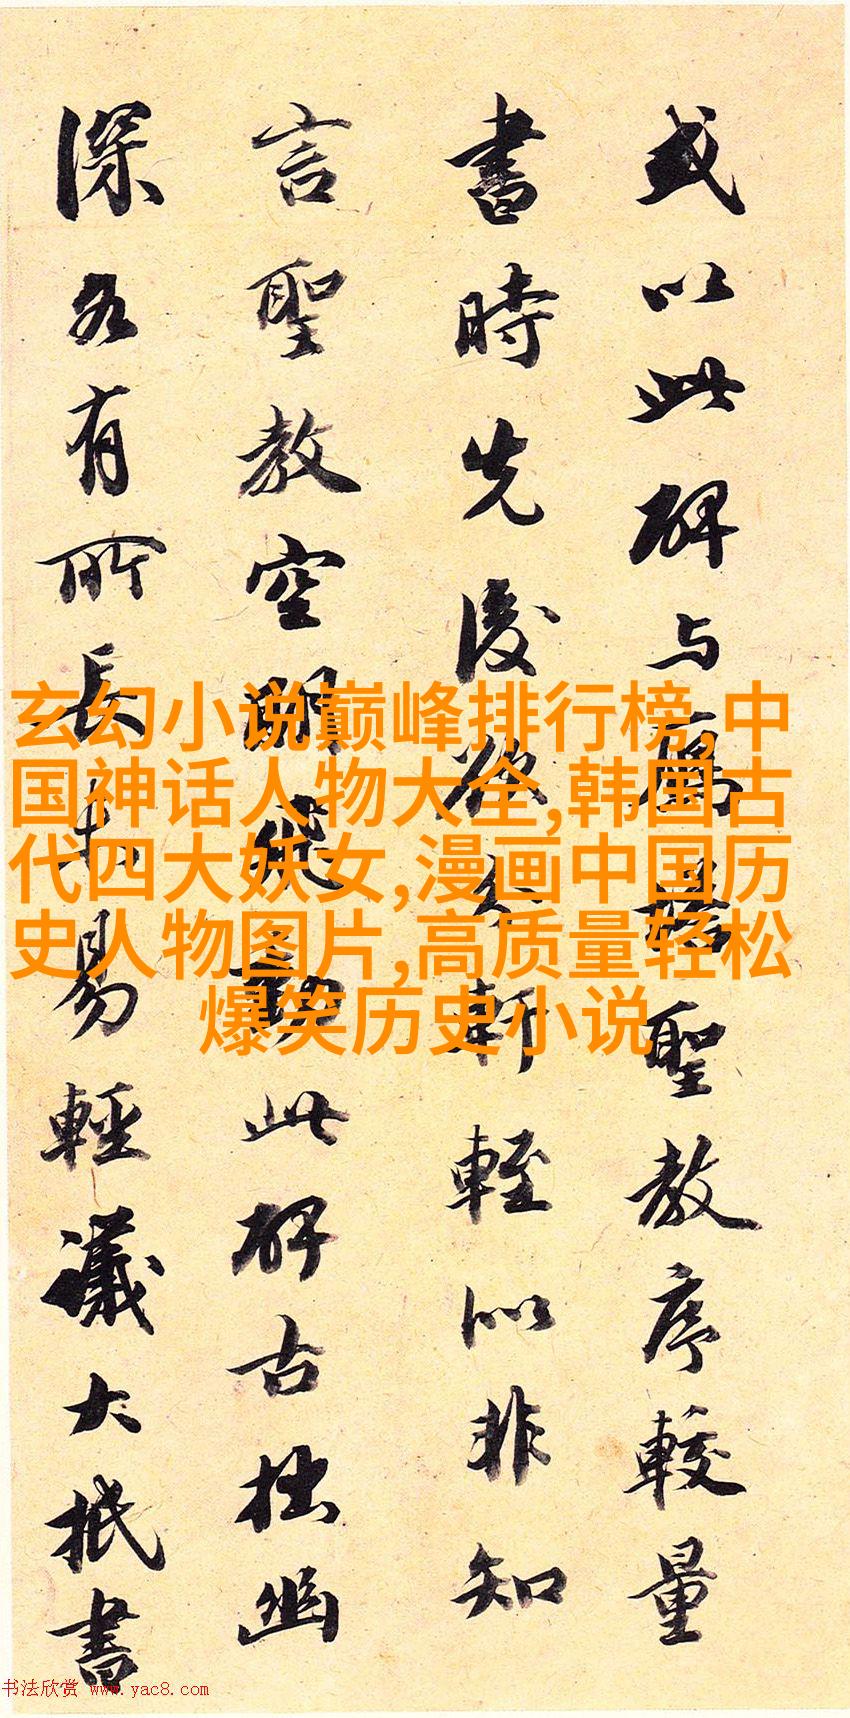 或以此碑与雁塔聖教序較量
書時先後欲分軒輊似非知
言聖教空明飛動此碑古拙幽
深各有所長未易輕議大抵書
玄幻小说巅峰排行榜,中
国神话人物大全,韩国古
代四大妖女,漫画中国历
史人物图片,高质量轻松
爆笑历史小说
书法欣赏 www.yac8.com